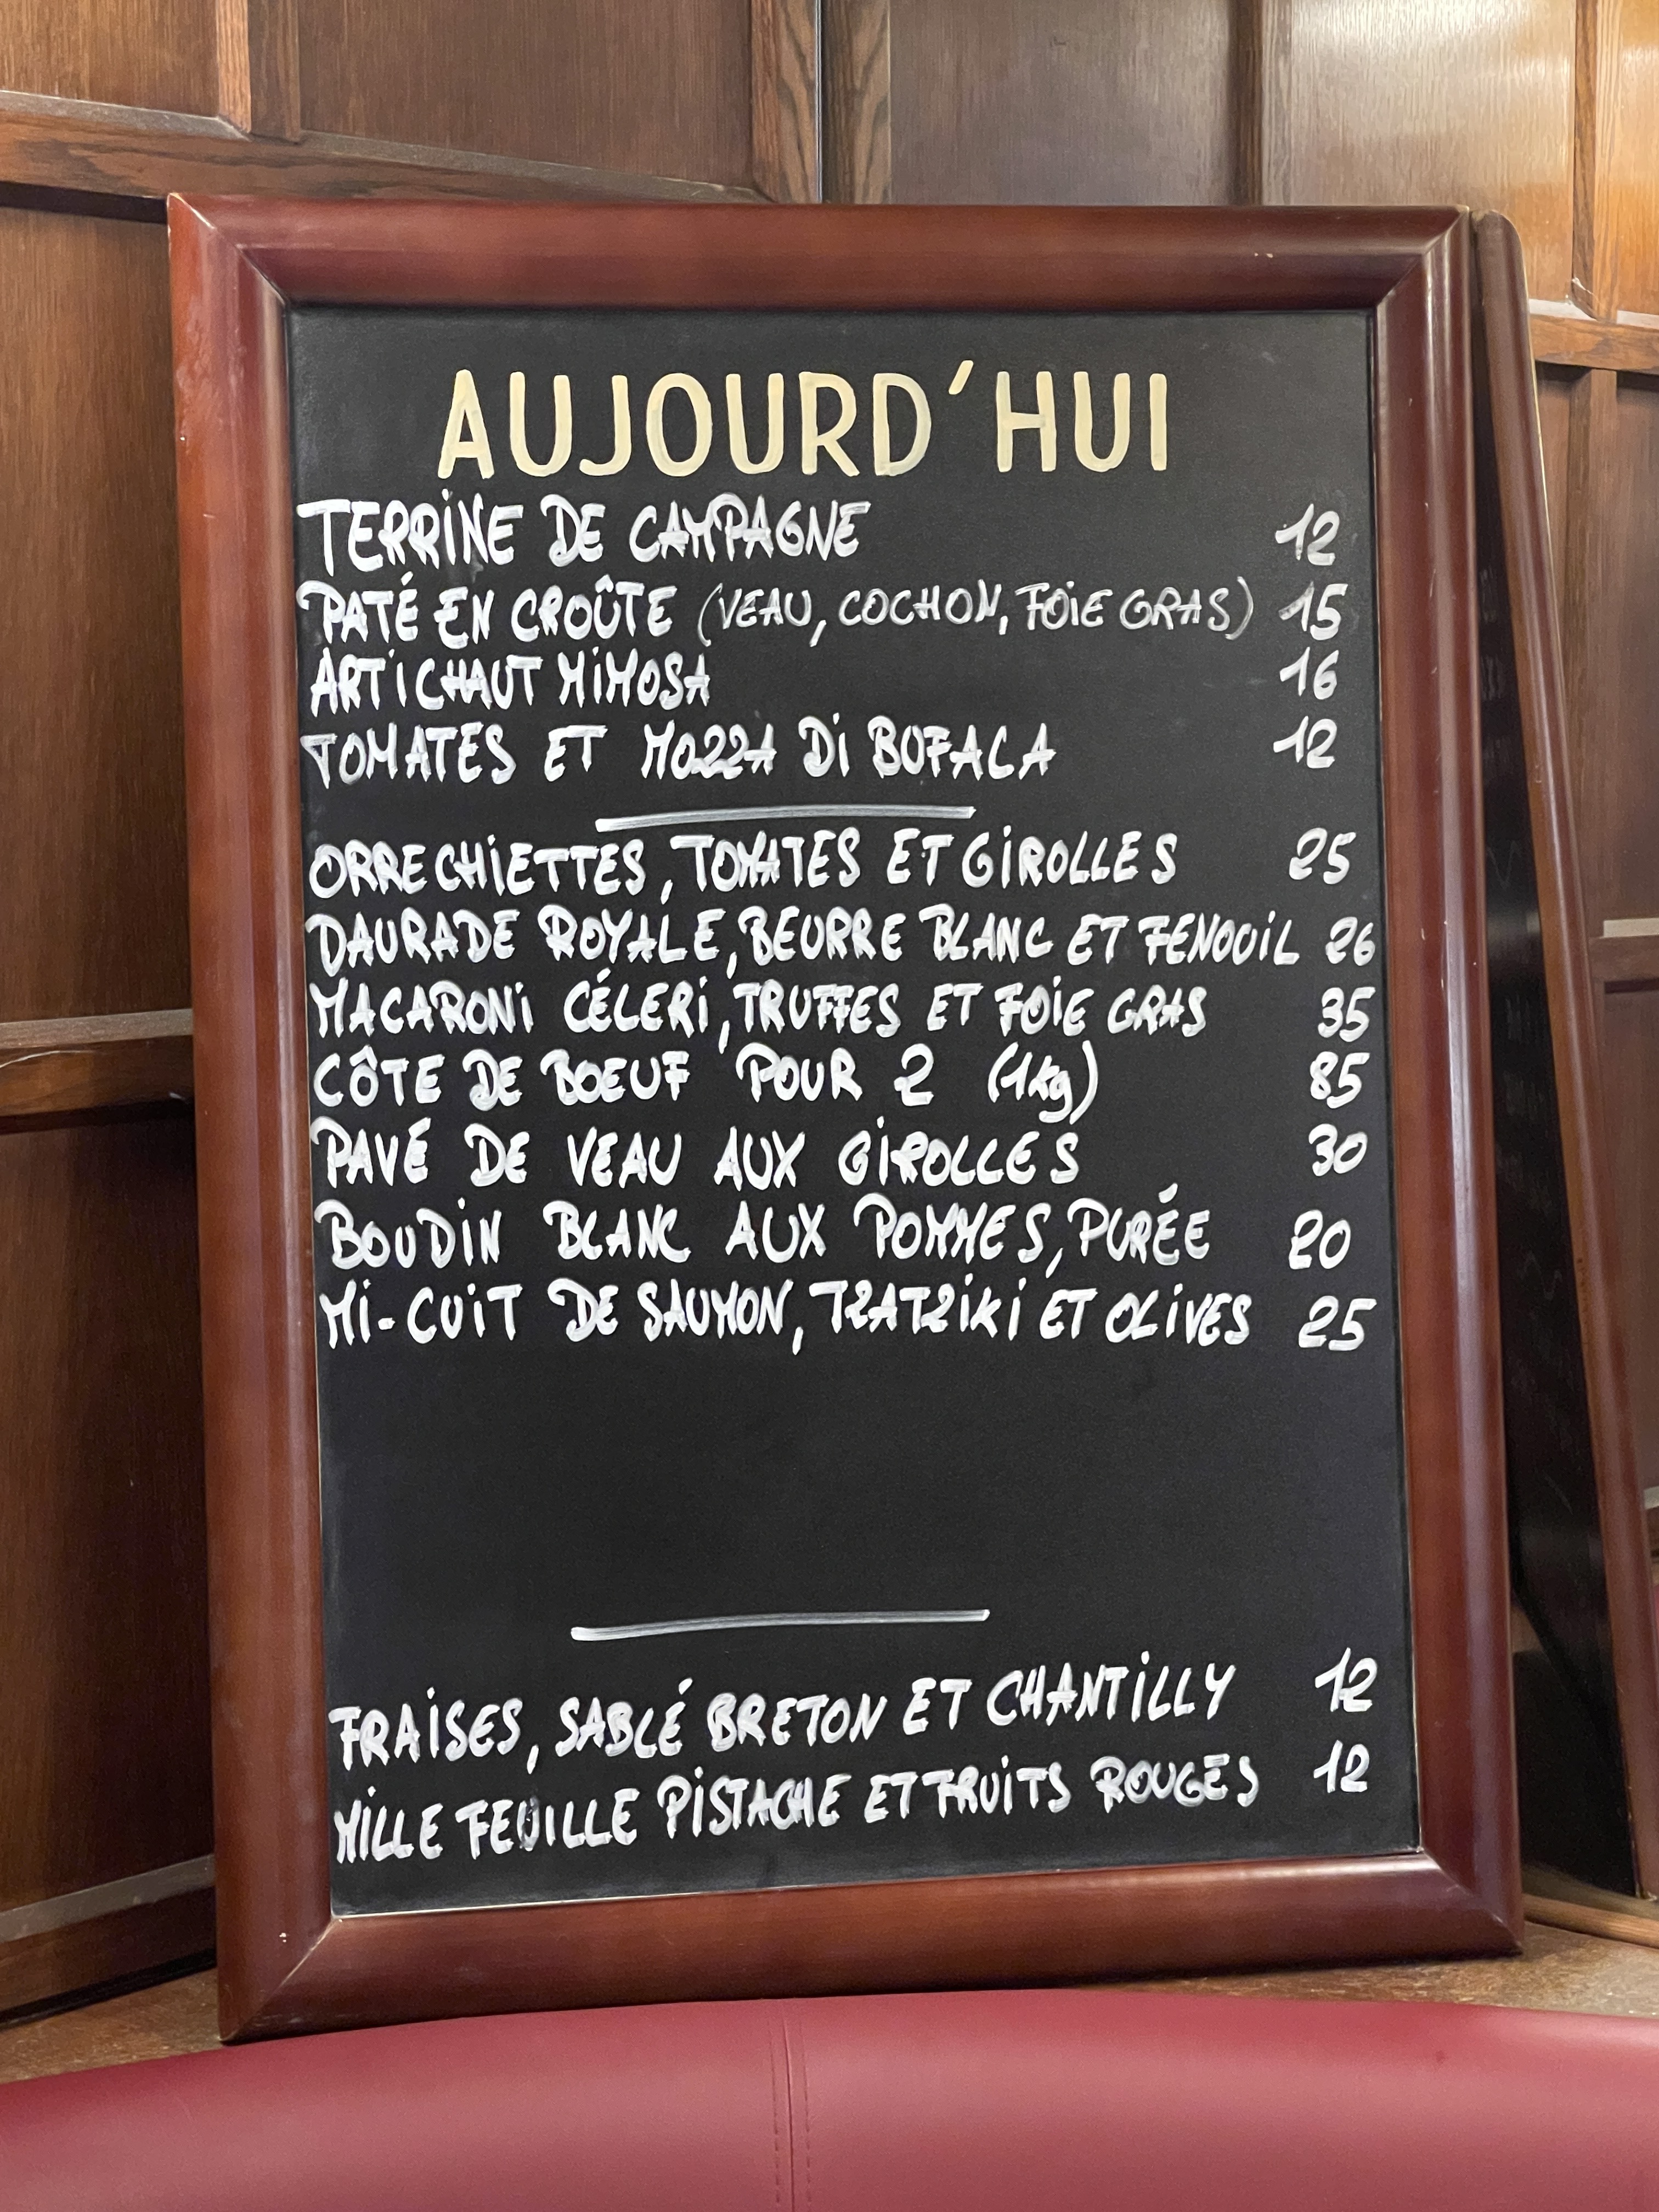 AUJOURD'HUI
TERRINE DE CAMPAGNE 12
PATÉ EN CROÛTE (VEAU, COCHON, FOIE GRAS) 15
ARTICHAUT MIMOSA 16
TOMATES ET MOZZA DI BUFALA 12
ORRECHIETTES, TOMATES ET GIROLLES 25
DAURADE ROYALE, BEURRE BLANC ET FENOUIL 26
MACARONI CÉLERI, TRUFFES ET FOIE GRAS 35
CÔTE DE BOEUF POUR 2 (1kg) 85
PAVÉ DE VEAU AUX GIROLLES 30
BOUDIN BLANC AUX POMMES, PURÉE 20
MI-CUIT DE SAUMON, TZATZIKI ET OLIVES 25
FRAISES, SABLÉ BRETON ET CHANTILLY 12
MILLE FEUILLE PISTACHE ET FRUITS ROUGES 12